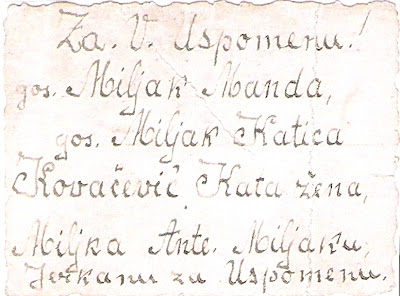 Za. V. Uspomenu!
gos. Miljak Manda,
gos. Miljak Katica
Kovačević Kata žena,
Miljka Ante. Miljaku,
Jerkanu za Uspomenu.